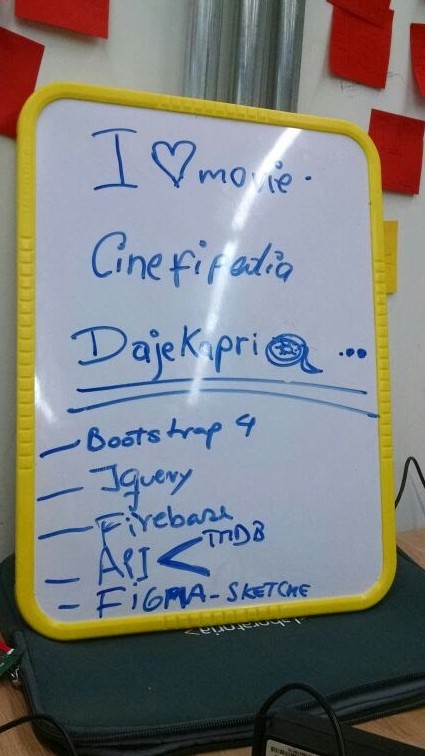 I ♡ movie.
Cinefipedia
DajeKapri ...
- Bootstrap 4
- Jquery
- Firebase
- API < TMDB
- FiGMA - SKETCHE